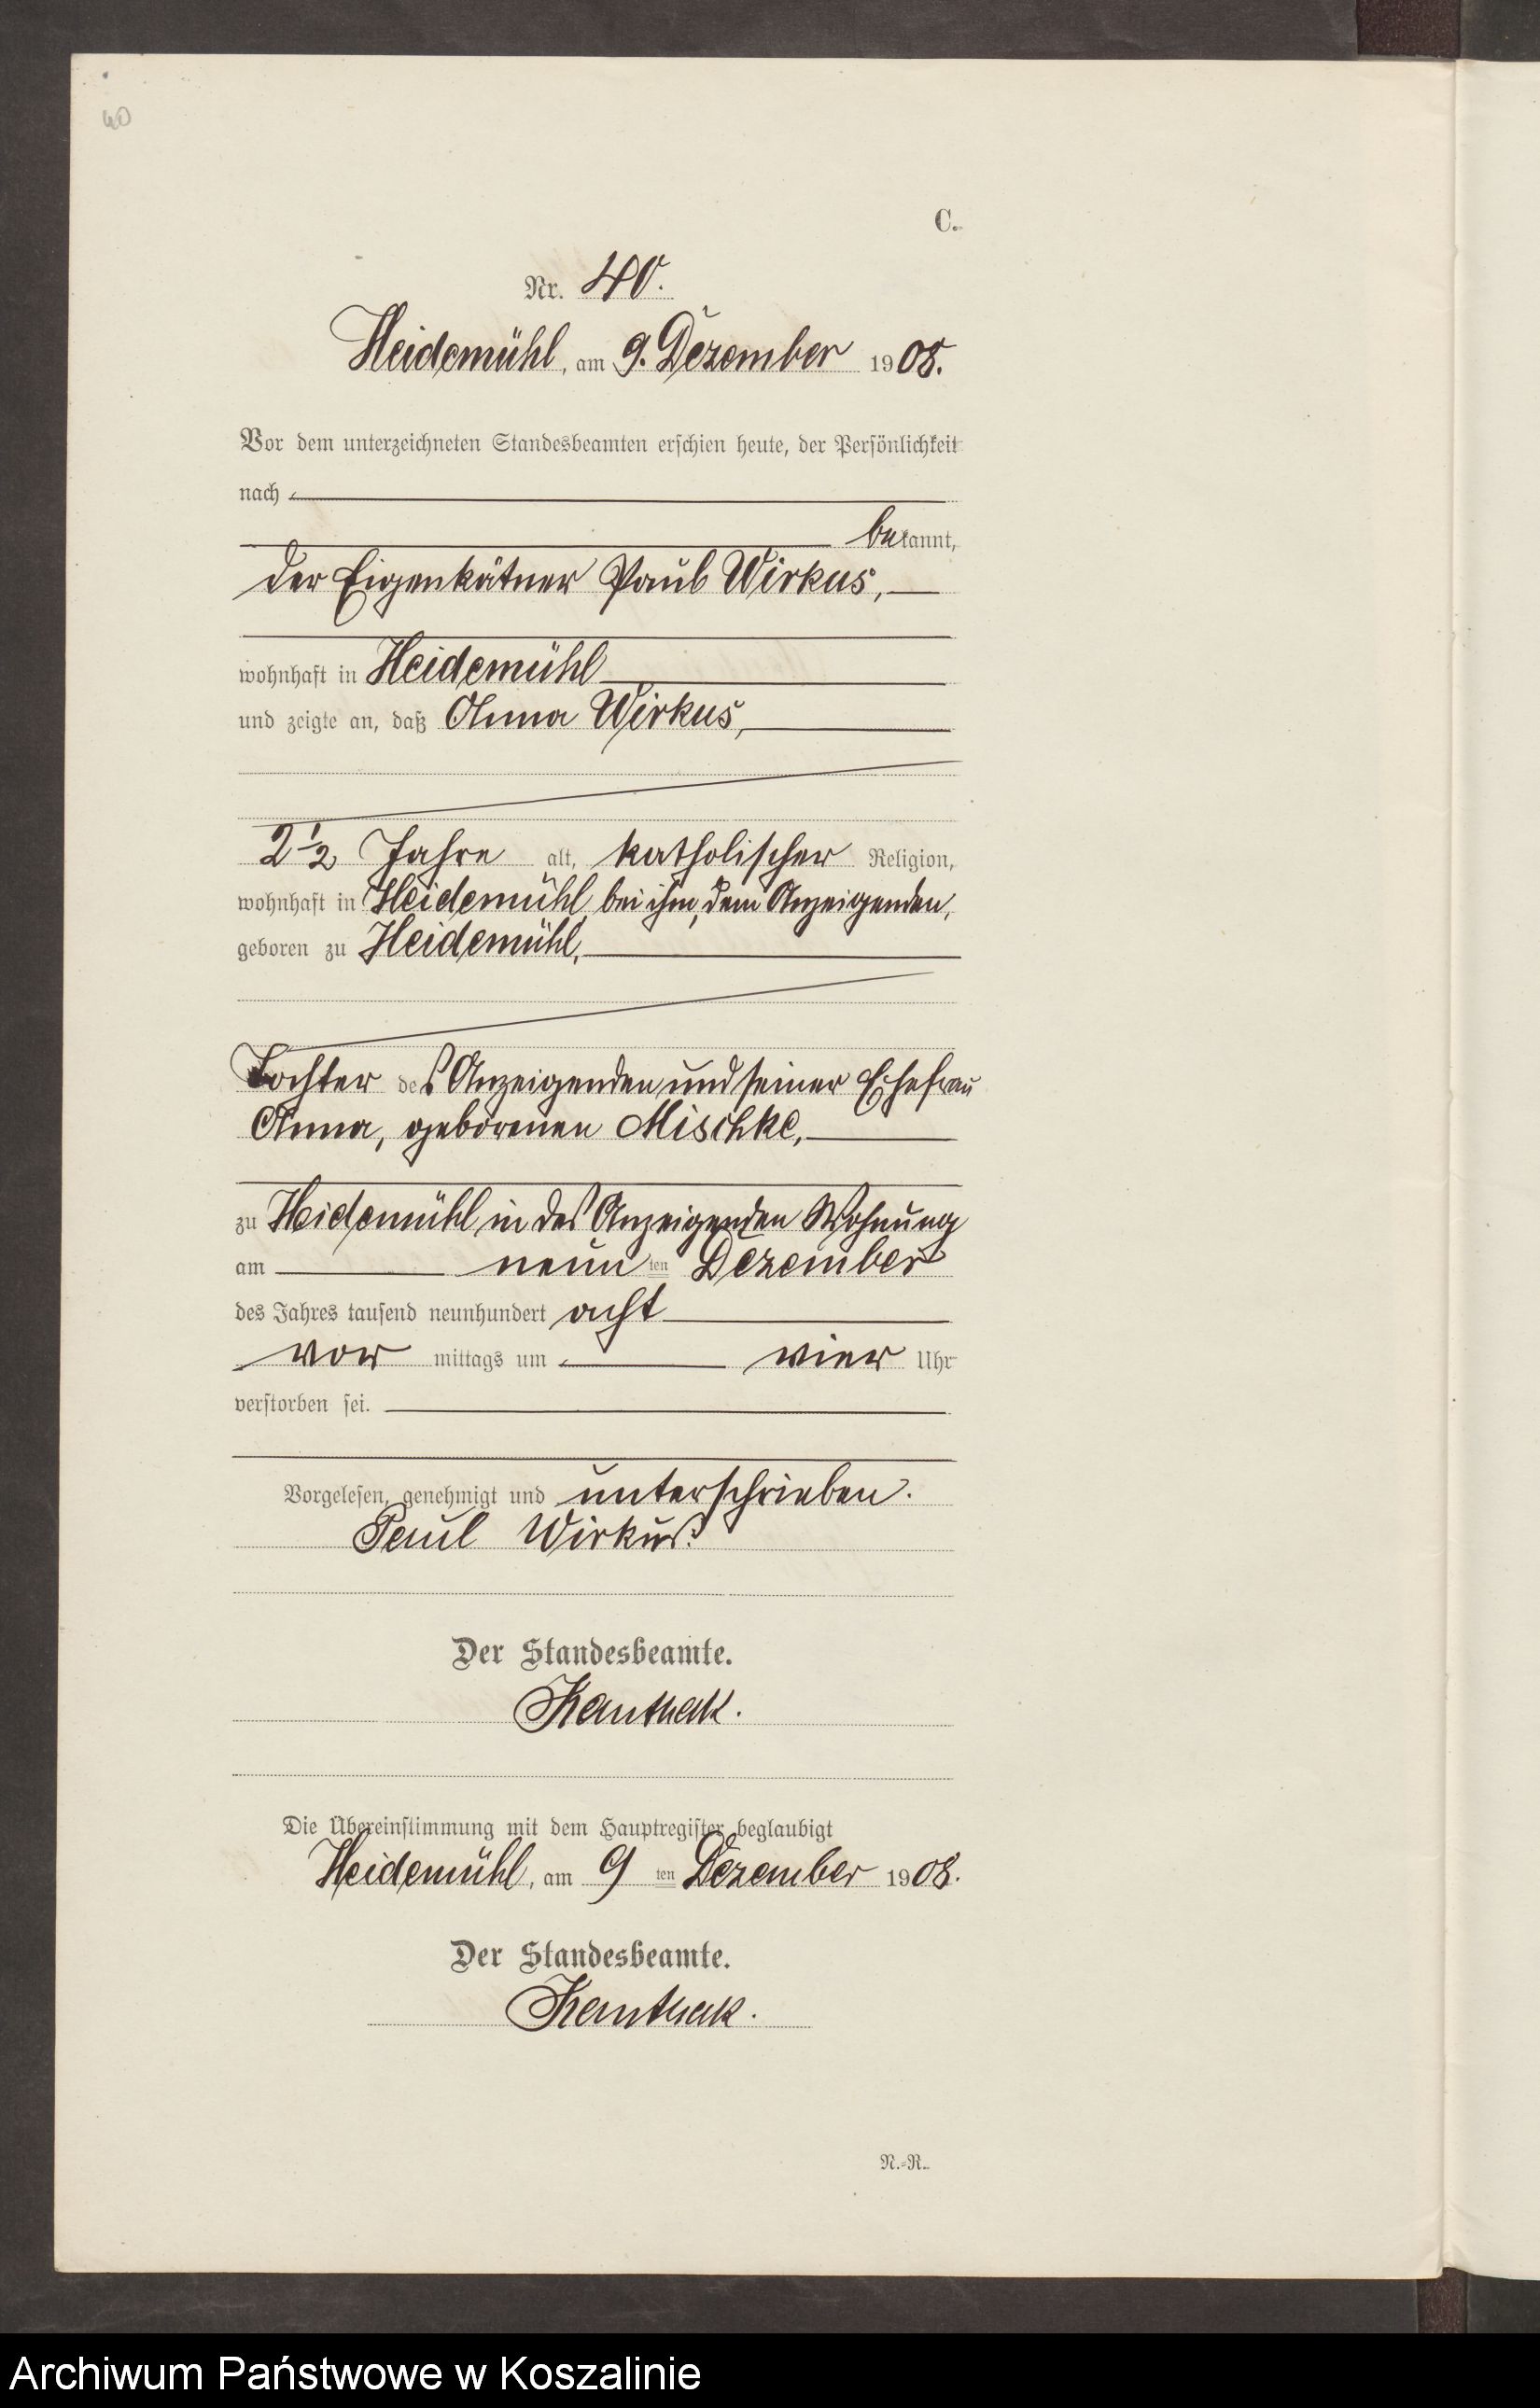 40
C.
Nr. 40.
Heidemühl, am 9. Dezember 1908.
Vor dem unterzeichneten Standesbeamten erschien heute, der Persönlichkeit
nach
bekannt,
der Eigenkätner Paul Wirkus,
wohnhaft in Heidemühl
und zeigte an, daß Anna Wirkus,
2 1/2 Jahre alt, katholischer Religion,
wohnhaft in Heidemühl bei ihm, dem Anzeigenden,
geboren zu Heidemühl,
Tochter des Anzeigenden und seiner Ehefrau
Anna, geborenen Mischke,
zu Heidemühl in des Anzeigenden Wohnung
am neunten Dezember
des Jahres tausend neunhundert acht
vor mittags um vier Uhr
verstorben sei.
Vorgelesen, genehmigt und unterschrieben.
Paul Wirkus.
Der Standesbeamte.
Kanthak.
Die Übereinstimmung mit dem Hauptregister beglaubigt
Heidemühl, am 9 ten Dezember 1908.
Der Standesbeamte.
Kanthak.
N.-R.
Archiwum Państwowe w Koszalinie